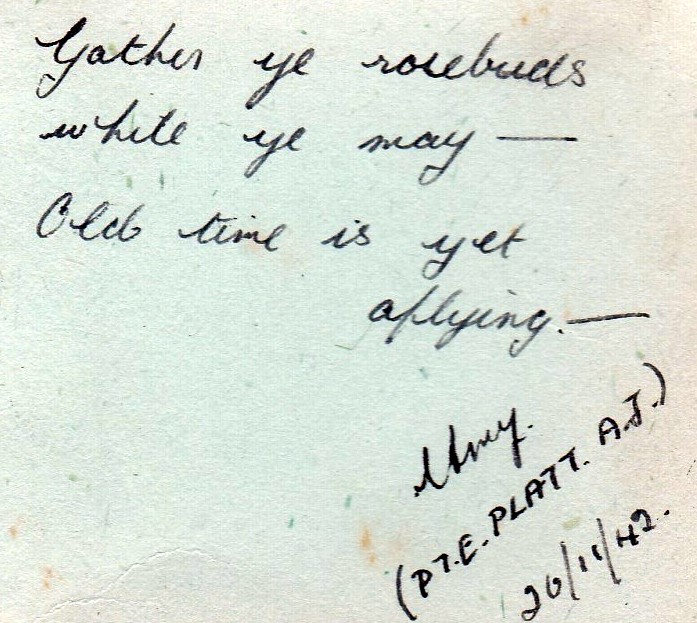 Gather ye rosebuds
while ye may —
Old time is yet
aflying. —
(PTE. PLATT. A.J.)
20/11/42.